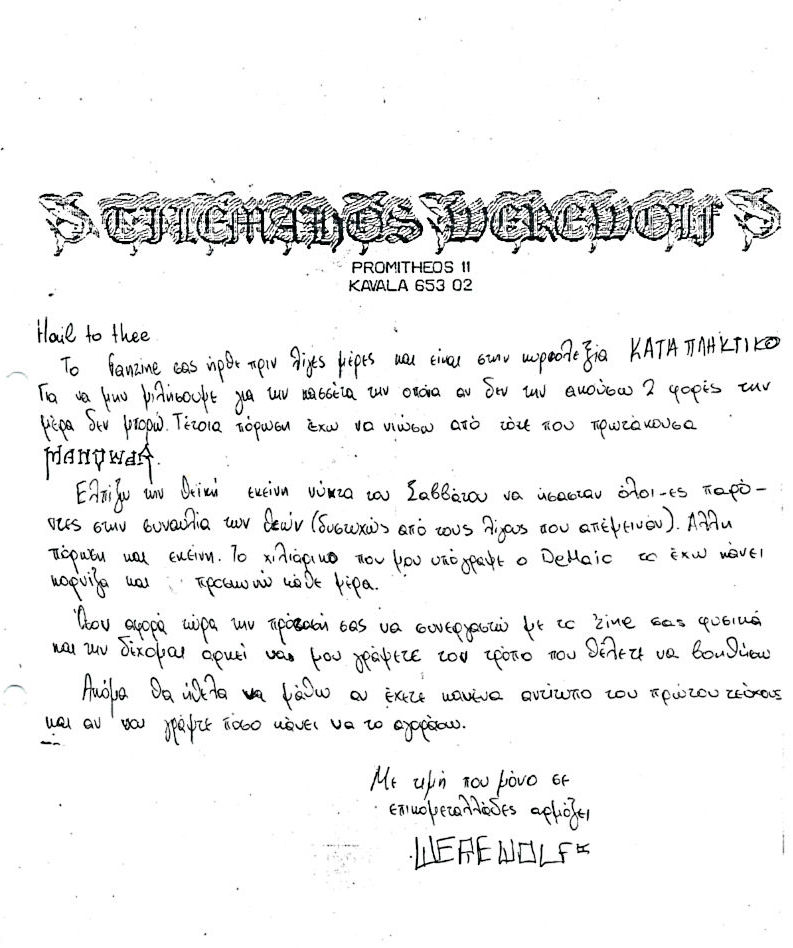 TILEMAHOS WEREWOLF
PROMITHEOS 11
KAVALA 653 02
Hail to thee
Το fanzine σας ήρθε πριν λίγες μέρες και είναι στην κυριολεξία ΚΑΤΑΠΛΗΚΤΙΚΟ
Για να μην μιλήσουμε για την κασσέτα την οποία αν δεν την ακούσω 2 φορές την
μέρα δεν μπορώ. Τέτοια πόρωση έχω να νιώσω από τότε που πρωτάκουσα
MANOWAR.
Ελπίζω την θεϊκή εκείνη νύκτα του Σαββάτου να ήσασταν όλοι-ες παρό-
ντες στην συναυλία των θεών (δυστυχώς από τους λίγους που απέμειναν). Άλλη
πόρωση και εκείνη. Το χιλιάρικο που μου υπόγραψε ο DeMaio το έχω κάνει
κορνίζα και προσκυνώ κάθε μέρα.
Όσον αφορά τώρα την πρόταση σας να συνεργαστώ με το 'zine σας φυσικά
και την δέχομαι αρκεί να μου γράψετε τον τρόπο που θέλετε να βοηθήσω
Ακόμα θα ήθελα να μάθω αν έχετε κανένα αντίτυπο του πρώτου τεύχους
και αν ναι γράψτε πόσο κάνει να το αγοράσω.
Με τιμή που μόνο σε
επικομεταλλάδες αρμόζει
WEREWOLF